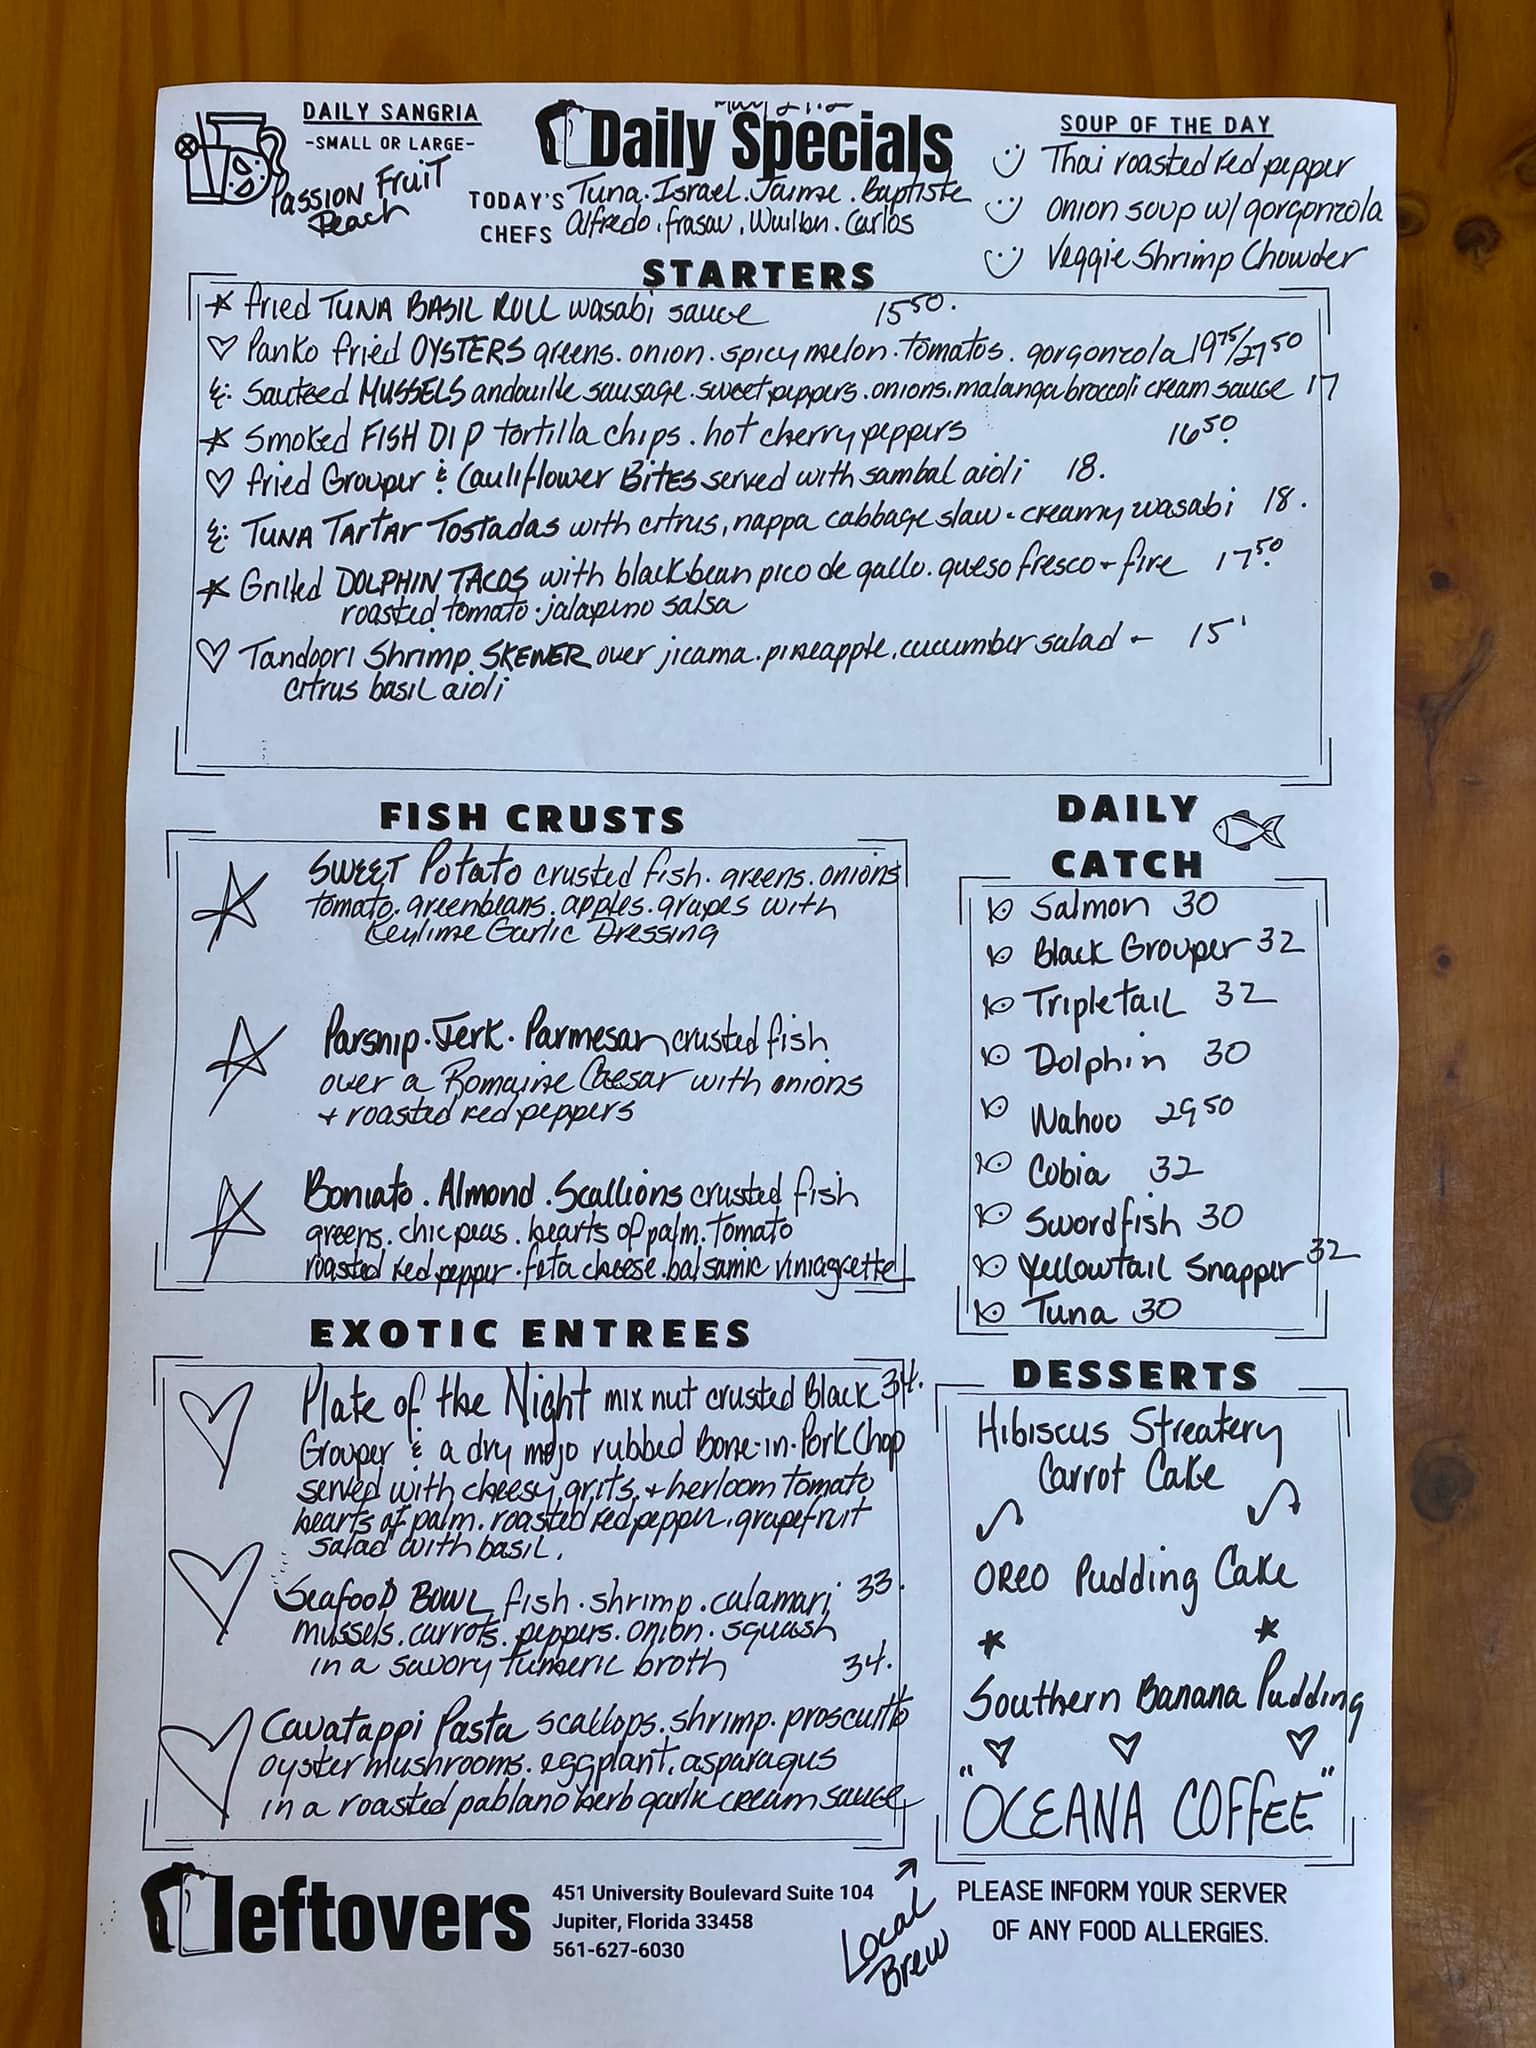 DAILY SANGRIA
-SMALL OR LARGE-
PASSION FRUIT
Peach
Daily Specials
TODAY'S CHEFS
Tuna. Israel. Jaime. Baptiste
Alfredo. frasau, Wuilbn. Carlos
SOUP OF THE DAY
Thai roasted red pepper
onion soup w/ gorgonzola
Veggie Shrimp Chowder
STARTERS
fried TUNA BASIL ROLL wasabi sauce 15 50.
Panko fried OYSTERS greens. onion. spicy melon. tomatos. gorgonzola 19 75/27 50
Sauteed MUSSELS andouille sausage. sweet peppers. onions. malanga broccoli cream sauce 17
Smoked FISH DIP tortilla chips. hot cherry peppers 16 50
fried Grouper & Cauliflower BITES served with sambal aioli 18.
TUNA TARTAR TOSTADAS with citrus, nappa cabbage slaw - creamy wasabi 18.
Grilled DOLPHIN TACOS with black bean pico de gallo. queso fresco + fire 17 50
roasted tomato. jalapeno salsa
Tandoori Shrimp SKEWER over jicama. pineapple. cucumber salad - 15
citrus basil aioli
FISH CRUSTS
SWEET Potato crusted fish. greens. onions
tomato. greenbeans. apples. grapes with
Keylime Garlic Dressing
Parsnip. Jerk. Parmesan crusted fish
over a Romaine Caesar with onions
+ roasted red peppers
Boniato. Almond. Scallions crusted fish
greens. chic peas. hearts of palm. tomato
roasted red pepper. feta cheese. balsamic viniagrette
DAILY
CATCH
Salmon 30
Black Grouper 32
Tripletail 32
Dolphin 30
Wahoo 29 50
Cobia 32
Swordfish 30
Yellowtail Snapper 32
Tuna 30
EXOTIC ENTREES
Plate of the Night mix nut crusted Black 34.
Grouper & a dry mojo rubbed Bone-in-Pork Chop
served with cheesy grits. + herloom tomato
hearts of palm. roasted red pepper. grapefruit
salad with basil.
Seafood BOWL fish. shrimp. calamari 33.
mussels. carrots. peppers. onion. squash
in a savory tumeric broth 34.
Cavatappi Pasta scallops. shrimp. proscuitto
oyster mushrooms. eggplant. asparagus
in a roasted pablano herb garlic cream sauce
DESSERTS
Hibiscus Streatery
Carrot Cake
OREO Pudding Cake
Southern Banana Pudding
"OCEANA COFFEE"
leftovers
451 University Boulevard Suite 104
Jupiter, Florida 33458
561-627-6030
Local
Brew
PLEASE INFORM YOUR SERVER
OF ANY FOOD ALLERGIES.